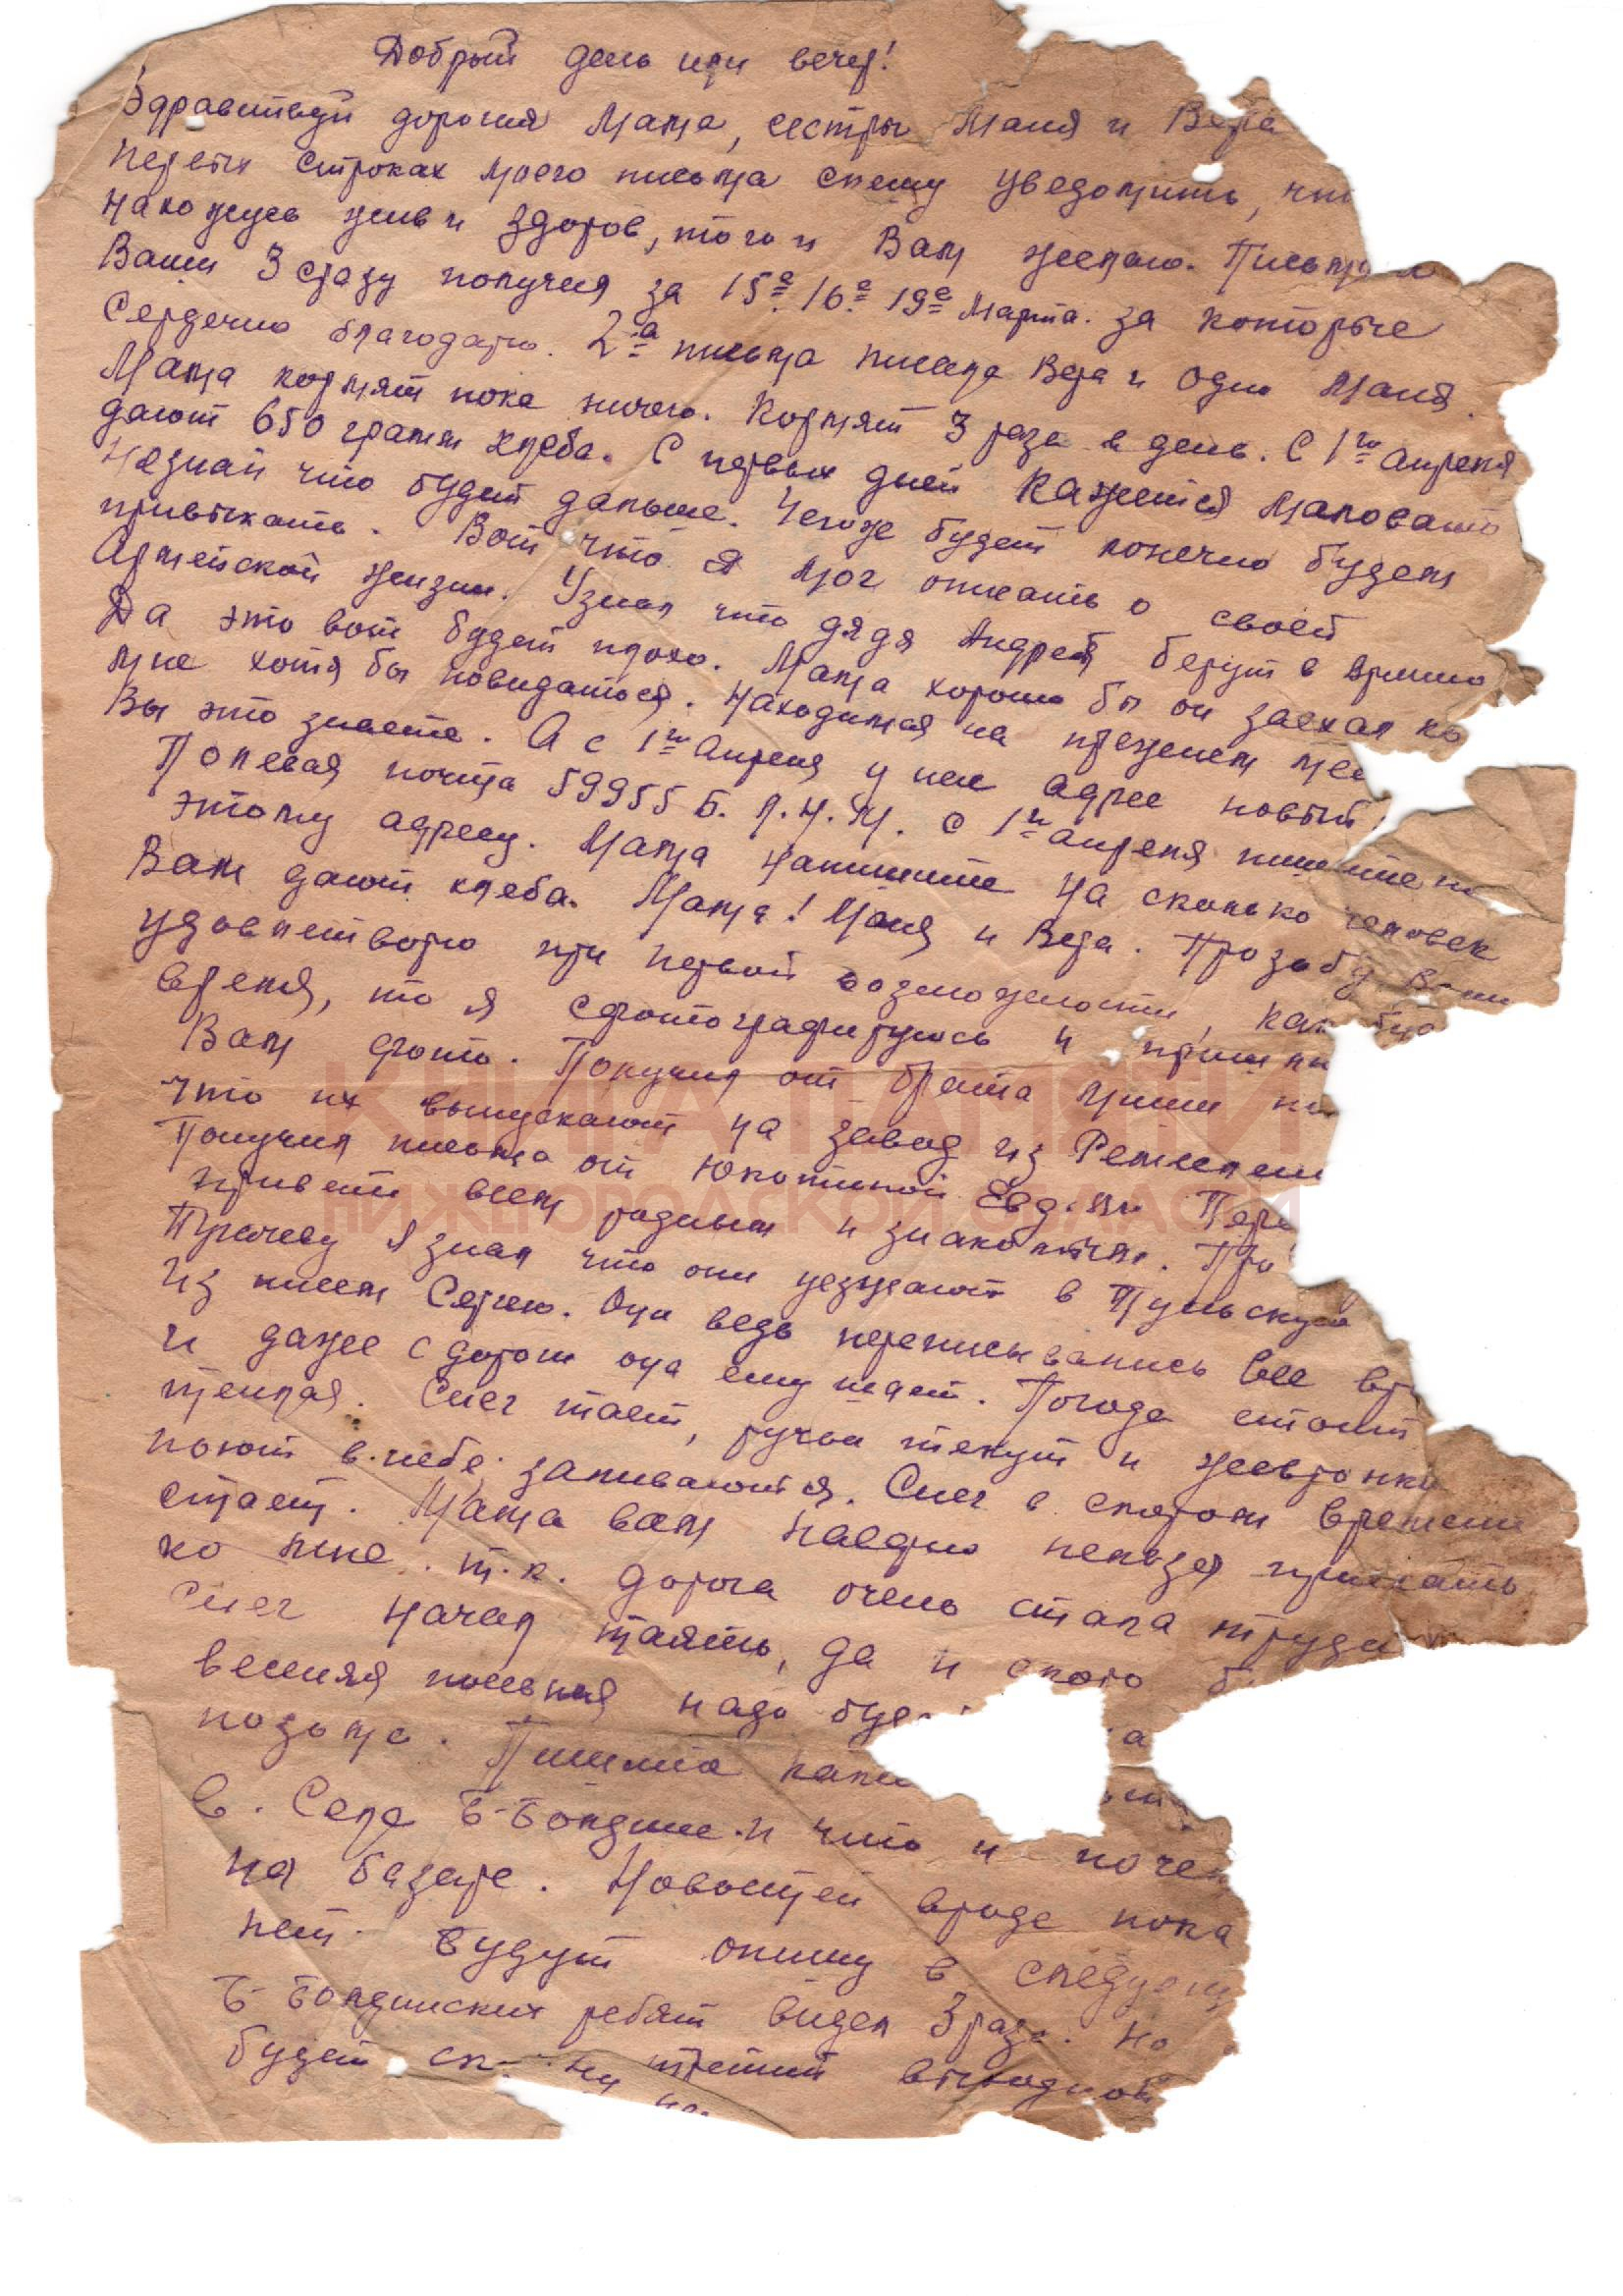 Добрый день или вечер!
Здравствуй дорогия Мама, сестры Маня и Вера
первых строках моего письма спешу уведомить, что
нахожусь жив и здоров, того и Вам желаю. Письма
Ваши 3 сразу получил за 15е 16е 19е Марта. за которые
Сердечно благодарю. 2а письма писала Вера и одно Маня.
Мама кормят пока ничего. Кормят 3 раза в день. С 1го апреля
дают 650 грамм хлеба. С первых дней кажется маловато
Незнаи что будет дальше. Чегоже будет конечно будем
привыкать. Вот что я мог описать о своей
Армейской жизни. Узнал что дядя Андрей берут в армию
Да это вот будет плохо. Мама хорошо бы он заехал ко
мне хотя бы повидатося. Находимся на прежнем мес
Вы это знаете. А с 1го Апреля у нас адрес новый
Полевая почта 59955 Б. Л.Н.М. с 1го апреля пишите по
этому адресу. Мама напишите на сколько человек
Вам дают хлеба. Мама! Маня и Вера. Прозьбу Вашу
удовлетворю при первой возможности, как буд
время, то я сфотографируюсь и пришлю
Вам фото. Получил от брата Миши
что их выпускают на завод из Ремеслен
Получил письмо от Юкотиной Евд. Пере
привет всем родным и знакомым. Про
Пряхину Я знал что они уезжают в Тульскую
Из писем Сергею. Они ведь переписывались все вр
и даже с дороги она ему шлет. Погода стоит
теплая. Снег тает, ручьи текут и жевронки
поют в небе заливаются. Снег в скором времени
стает. Мама вам наедно нельзя приехать
ко мне. т.к. дорога очень стала трудн
Снег начал таять, да и скоро б
весняя посевная надо буде а
лозьма. Пишите
в. Села Б-Болдине и что и почем
на базаре. Новостей вроде пока
нет. Будут опишу в следующ
Б-Болдинских ребят видел 3 раза. Но
будет третий выходной